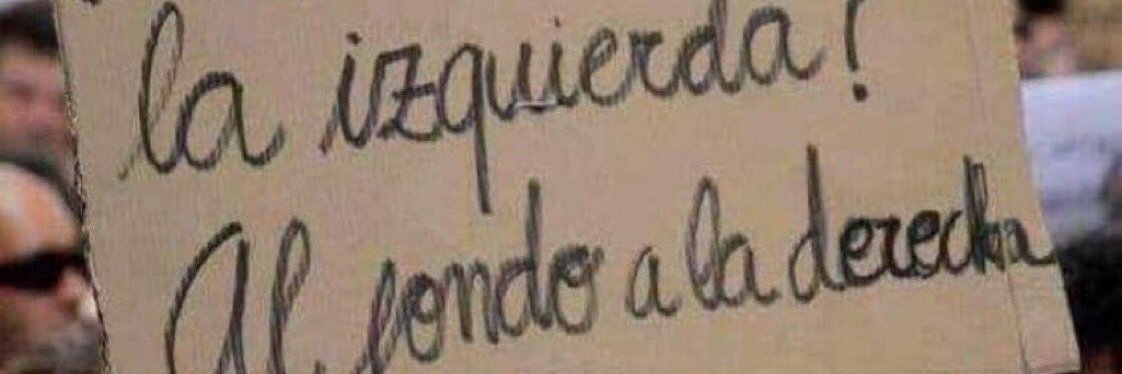 la izquierda?
Al fondo a la derecha